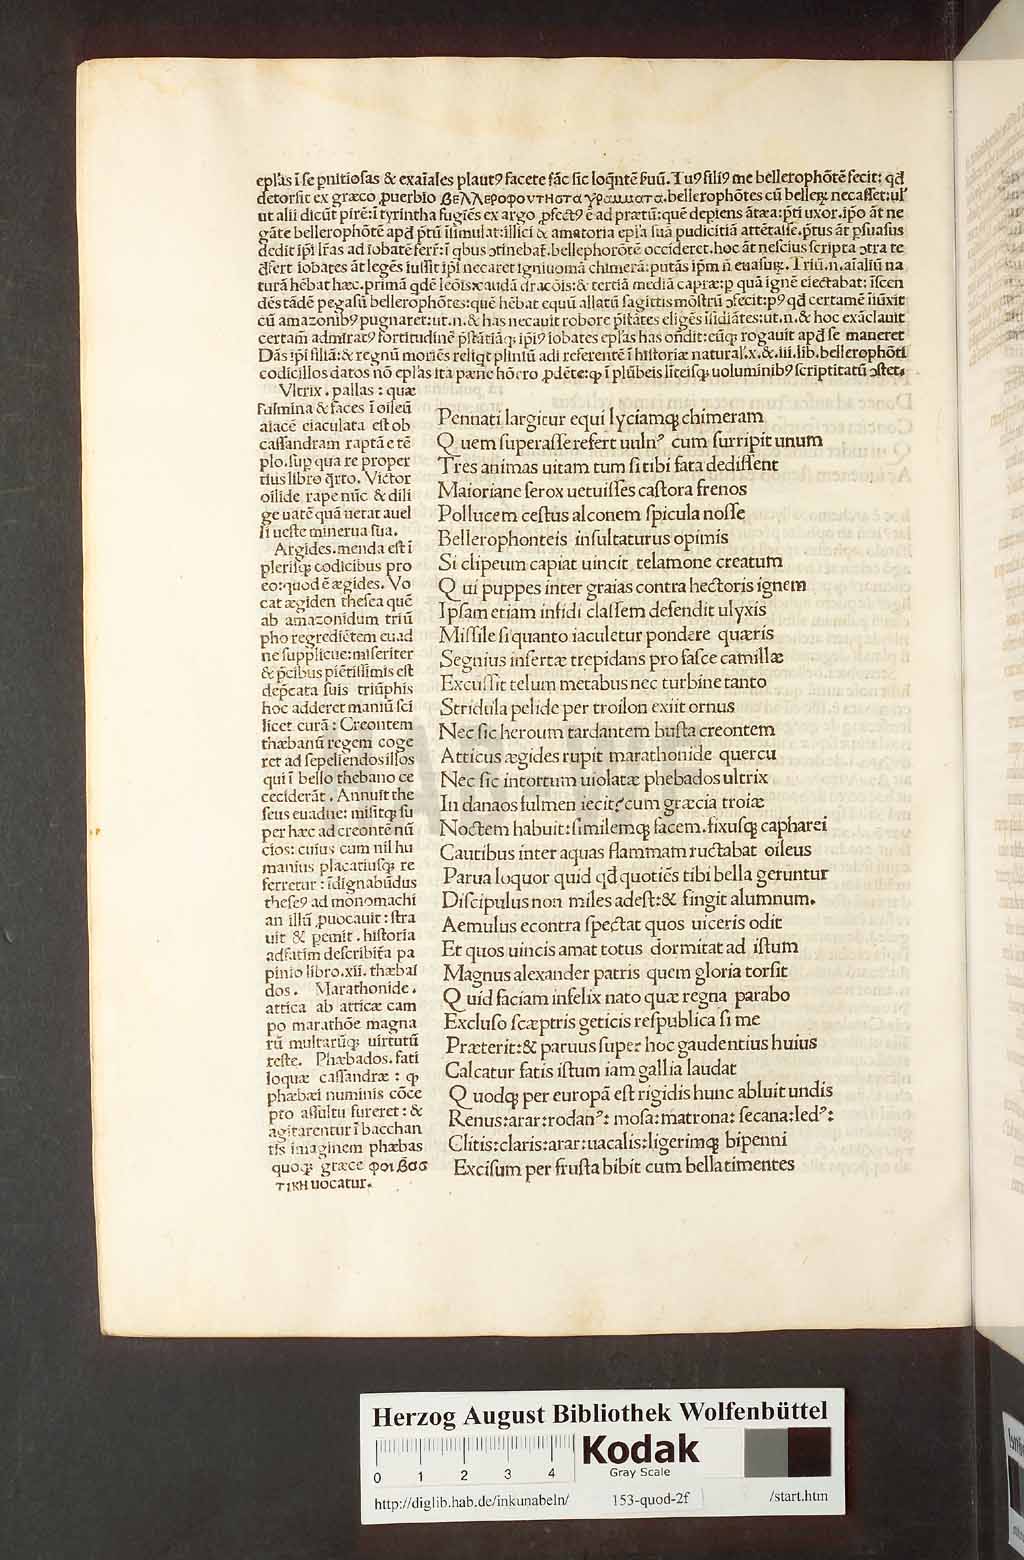 epłas ī se ꝑnitiosas & exaīales plautꝰ facete fāc sic loq̄ntē ẜuū. Tuꝰ filiꝰ me bellerophōtē fecit: qđ
detorsit ex græco ꝓuerbio βελλεροφουτηστα γραμματα. bellerophōtes cū belleꝝ necasset: ul'
ut alii dicūt pirē: ī tyrintha fugiēs ex argo ꝓfectꝰ ē ad prætū: quē depiens ātæa: p̄ti uxor. ip̄o āt ne
gāte bellerophōtē apđ p̄tū īsimulat: illici & amatoria epła suā pudicitiā attētasse. p̄tus āt ꝑsuasus
dedit ip̄i lr̄as ad iobatē ferr̄: ī qbus ↄtinebat̄. bellephorōtē occideret. hoc āt nescius scripta ↄtra te
đfert iobates āt legēs iussit ip̄i necaret igniuomā chimerā: putās ip̄m n̄ euasuꝝ. Triū. n. aīaliū na
turā hēbat hæc. primā qdē leōis: caudā dracōis: & tertiā mediā capræ: ꝑ quā ignē eiectabat: īscen
dēs tādē pegasū bellerophōtes: quē hēbat equū allatū sagittis mōstrū ↄfecit: pꝰ qđ certamē iiūxit
cū amazonibꝰ pugnaret: ut. n. & has necauit robore p̄stātes eligēs īsidiātes: ut. n. & hoc exāclauit
certam̄ admiratꝰ fortitudinē p̄stātiāqꝫ ip̄iꝰ iobates epłas has on̄dit: cūqꝫ rogauit apđ se maneret
Dās ip̄i filiā: & regnū moriēs reliqt pliniū adi referentē ī historiæ natural'. x. & .iii. lib. bellerophōti
codicillos datos nō epłas ita pæne hōero ꝓdēte: qꝫ ī plūbeis līteisqꝫ uoluminibꝰ scriptitatū ↄstet.
Vltrix. pallas: quæ
fulmina & faces ī oileū
aiacē eiaculata est ob
cassandram raptā e tē
plo. sup qua re proper
tius libro q̄rto. Victor
oilide rape nūc & dili
ge uatē quā uetat auel
li ueste minerua sua.
Argides. menda est ī
plerisqꝫ codicibus pro
eo: quod ē ægides. Vo
cat ægiden thesea quē
ab amazonidum triū
pho regrediētem euad
ne supplicue: miseriter
& p̄cibus piētissimis est
dep̄cata suis triūphis
hoc adderet maniū sci
licet curā: Creontem
thæbanū regem coge
ret ad sepeliendos illos
qui ī bello thebano ce
ceciderāt. Annuit the
seus euadne: misitqꝫ su
per hæc ad creontē nū
cios: cuius cum nil hu
manius placatiusqꝫ re
ferretur: īdignabūdus
theseꝰ ad monomachi
an illū ꝓuocauit: stra
uit & ꝑemit. historia
adfatim describit̄a pa
pinio libro. xii. thæbai
dos. Marathonide.
attica ab atticæ cam
po marathōe magna
rū multarūqꝫ uirtutū
teste. Phæbados. fati
loquæ cassandræ: qꝫ
phæbæi numinis cōce
pto assultu fureret: &
agitarentur ī bacchan
tis imaginem phæbas
quoqꝫ græce φοιβασ
τικη uocatur.
Pennati largitur equi lyciamqꝫ chimeram
Quem superasse refert uulnꝰ cum surripit unum
Tres animas uitam tum si tibi fata dedissent
Maioriane ferox uetuisses castora frenos
Pollucem cestus alconem spicula nosse
Bellerophonteis insultaturus opimis
Si clipeum capiat uincit telamone creatum
Qui puppes inter graias contra hectoris ignem
Ipsam etiam infidi classem defendit ulyxis
Missile si quanto iaculetur pondere quæris
Segnius insertæ trepidans pro fasce camillæ
Excussit telum metabus nec turbine tanto
Stridula pelide per troilon exiit ornus
Nec sic heroum tardantem busta creontem
Atticus ægides rupit marathonide quercu
Nec sic intortum uiolatæ phebados ultrix
In danaos fulmen iecit: cum græcia troiæ
Noctem habuit: similemqꝫ facem. fixusqꝫ capharei
Cautibus inter aquas flammam ructabat oileus
Parua loquor quid qđ quotiēs tibi bella geruntur
Discipulus non miles adest: & fingit alumnum.
Aemulus econtra spectat quos uiceris odit
Et quos uincis amat totus dormitat ad istum
Magnus alexander patris quem gloria torsit
Quid faciam infelix nato quæ regna parabo
Excluso scæptris geticis respublica si me
Præterit: & paruus super hoc gaudentius huius
Calcatur fatis istum iam gallia laudat
Quodqꝫ per europā est rigidis hunc abluit undis
Renus: arar: rodanꝰ: mosa: matrona: secana: ledꝰ:
Clitis: claris: arar: uacalis: ligerimqꝫ bipenni
Excisum per frusta bibit cum bella timentes
Herzog August Bibliothek Wolfenbüttel
Kodak
Gray Scale
0 1 2 3 4
http://diglib.hab.de/inkunabeln/ 153-quod-2f /start.htm
HAB WF